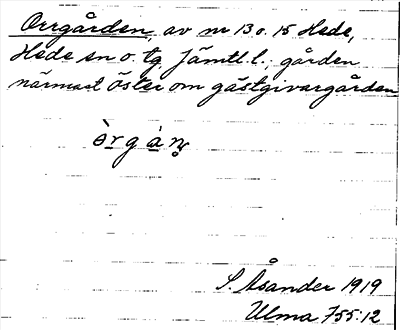 Orrgården, av nr 13 o. 15 Hede,
Hede sn o. tg. Jämtl. l.; gården
närmast öster om gästgivargården
ὲrgàn̥
S. Åsander 1919
Ulma 755:12